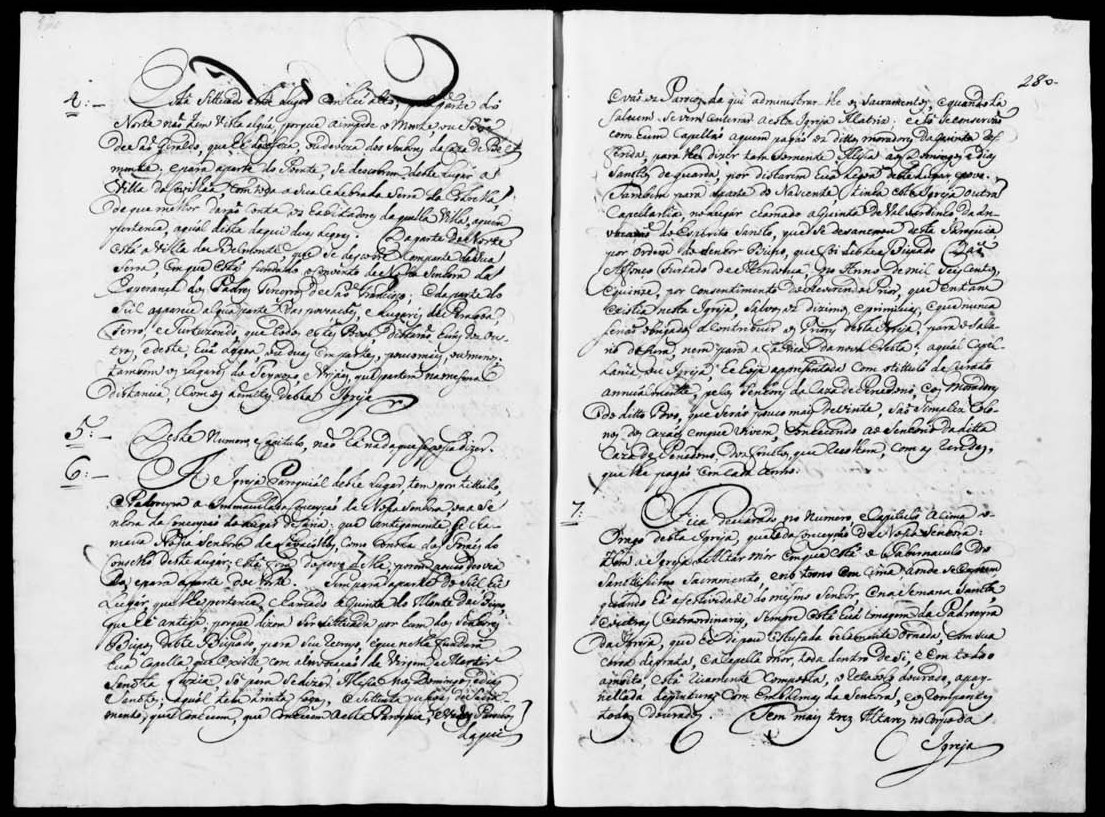 4:- Está situado este lugar em sitio alto, pela parte do
Norte não tem vista algûa, porque a impede o monte ou Serra
de São Giraldo, que he deffeza, ou deveza dos Senhores da Caza de Bel
monte, e para a parte do Poente, se descobrem deste lugar a
Villa da Covilhãa, com toda a dita celebrada Serra da Estrella,
de que melhor darão conta os habitadores daquella Villa, a quem
pertence, a qual dista daqui duas legoas; Da parte do Norte
está a Villa de Belmonte, que se descobre com parte da sua
Serra, em que está fundado o convento de Nossa Senhora da
Esperança dos Padres Terceiros de São Francisco; e da parte do
Sul aparece algûa parte das povoações, e lugares, de
Ferro, e Turtuzendo, que todos estes Povos, distarão huns dos ou-
tros, e deste, hûa legoa, ou duas em partes, pouco mais, ou menos,
tambem os lugares do Terroso, e que partem na mesma
distancia, com os lemites desta Igreja
5:- Deste Numero, e Capitulo, não há nada que se possa dizer.
6:- A Igreja Paroquial deste lugar, tem por tittulo,
Padroeyra a Immaculada Conceyção de Nossa Senhora, ou a Se-
nhora da Conceyção do lugar de Caria: que antigamente se cha-
mava Nossa Senhora de como consta do do
Conselho deste lugar; está fora do povo delle, porem pouco desvia
da, e para a parte do Norte. Tem para a parte do Sul hû
Lugar, que lhe pertence, chamado a Quinta do Monte do Bispo,
que hé antiga, porque dizem ser situada por hum dos Senhores
Bispos deste Bispado, para seu recreyo, e que nella fundara
hûa Capella, que existe com a invocação da Virgem e Martir
Santa Luzia, só para se dizer Missa nos Domingos, e dias
Santos; a qual tem trinta fogos, e settenta pessoas de Sacra
mento, que conhecem, que conhecem a esta Paroquia, e vão os Parocos
daqui
280
e vão os Parocos da qui administrar-lhe os Sacramentos, e quando lá
falecem. Se vem enterrar a esta Igreja Matriz. e só se conserva
com hum Capellão a quem pagão os dittos moradores da Quinta
para lhes dizer tam somente Missa aos Domingos, e dias
Santos de guarda, por distarem hûa legoa deste lugar, e povo.
Tambem para a parte do Nascente, tinha esta Igreja outra
Capellania, no lugar chamado a Quinta de Val Sardinho, da In-
vocação do Espirito Santo, que se desanexou desta Paroquia
por ordem do Senhor Bispo, que foi deste Bispado Dom
Affonço Furtado de Mendonça, no Anno de mil seis centos, e
quinze, por consentimento do Reverendo Prior, que entam
existia nesta Igreja, salvos os dizimos, e primicias, e que nunca
serião obrigados a contribuir os Priores desta Igreja, para o sala-
rio do Cura, nem para a fabrica da nova Creada; a qual Capel-
lania, ou Igreja, hé hoje aprezentada com o tittulo de Curato
annualmente, pelos Senhores da Caza de Penedono, e os Moradores
do ditto Povo, que serão pouco mais de vinte, são simplices Colo-
nos, das cazas em que vivem, conhecendo ao Senhorio da ditta
Caza de Penedono, dos fruttos, que recolhem, com as rendas,
que lhe pagão em cada anno.
7:- Fica declarado no Numero, e Capitulo acima o
Orago desta Igreja, que he da Conceyção de Nossa Senhora:
Tem a Igreja o Altar mór em que está o Tabernaculo do
Santissimo Sacramento, e no trono em cima aonde se expoem
quando há a festividade do mesmo Senhor e na Semana Santa
e outras extraordinarias, sempre está hûa imagem da Padroeyra
da Igreja, que he de pao estufado belamente ornada, com sua
coroa de prata, e a capella mór, toda dentro de si, e em todo o
ambito está ricamente composta, o retabolo dourado, apay-
nellada de pinturas com emblemas da Senhora, e os rompantes
todos dourados. Tem mais tres Altares no corpo da
Igreja